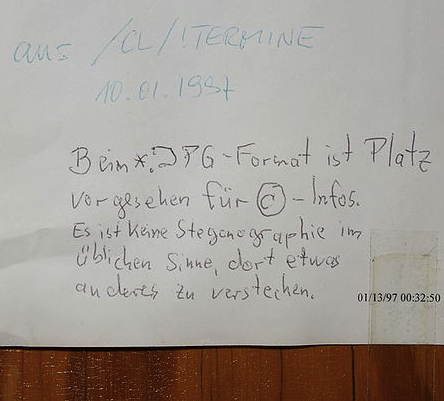 aus /CL/!TERMINE
10.01.1997
Beim *.JPG-Format ist Platz
vorgesehen für ©-Infos.
Es ist keine Steganographie im
üblichen Sinne, dort etwas
anderes zu verstecken.
01/13/97 00:32:50